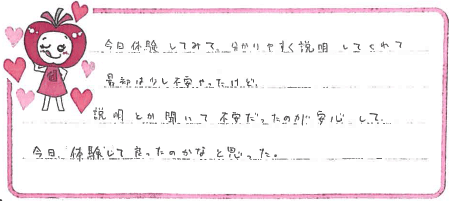 今日体験してみて、分かりやすく説明してくれて
最初は少し不安やったけど、
説明とか聞いて不安だったのが安心して、
今日、体験して良ったのかなと思った。